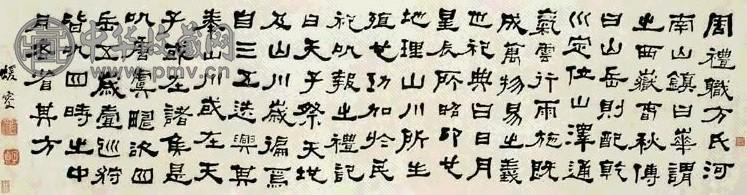 周禮職方氏河
南山鎮曰華謂
之西嶽春秋傳
曰山岳則配乾
巛定位山澤通
氣雲行雨施既
成萬物易之義
也祀典曰日月
星辰所昭卬也
地理山川所生
殖也功加於民
祀以報之禮記
曰天子祭天地
及山川歲徧焉
自三五迭興其
奉山川或在天
子或在諸侯是
以唐虞疇咨四
岳五歲壹巡狩
皆以四時之中
月各省其方
中华收藏网
www.pmv.cn